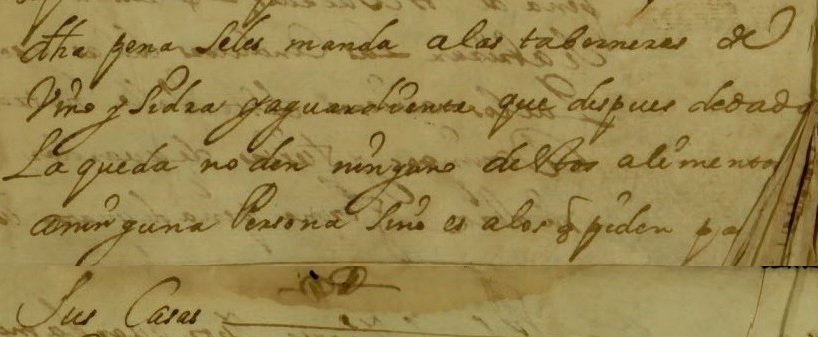 dha pena seles manda alas taberneras de
Vino y Sidra yaguardiente que despues dedada
La queda no den ninguno destos alimentos
aninguna Persona Sino es alos q piden pa
Sus Casas